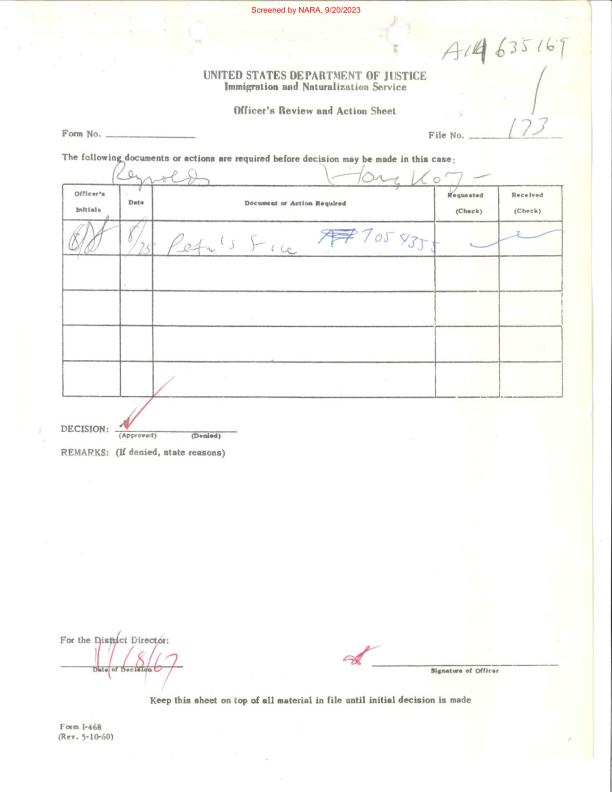 Screened by NARA, 9/20/2023
A14 635169
UNITED STATES DEPARTMENT OF JUSTICE
Immigration and Naturalization Service
Officer's Review and Action Sheet
Form No.
File No. 173
The following documents or actions are required before decision may be made in this case:
Reynolds Hong Kong
Officer's Initials Date Document or Action Required Requested (Check) Received (Check)
8/25 Petr's File 7054355
DECISION:
(Approved) (Denied)
REMARKS: (If denied, state reasons)
For the District Director:
11/8/67
Date of Decision Signature of Officer
Keep this sheet on top of all material in file until initial decision is made
Form I-468
(Rev. 5-10-60)